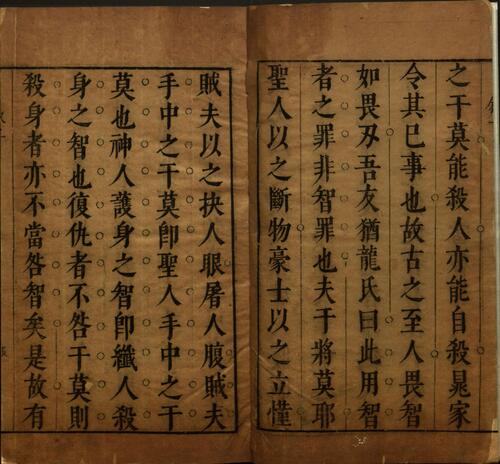 之干莫能殺人亦能自殺晁家
令其已事也故古之至人畏智
如畏刄吾友猶龍氏曰此用智
者之罪非智罪也夫干將莫耶
聖人以之斷物豪士以之立懂
賊夫以之抉人眼屠人腹賊夫
手中之干莫卽聖人手中之干
莫也神人護身之智卽纖人殺
身之智也復仇者不咎干莫則
殺身者亦不當咎智矣是故有